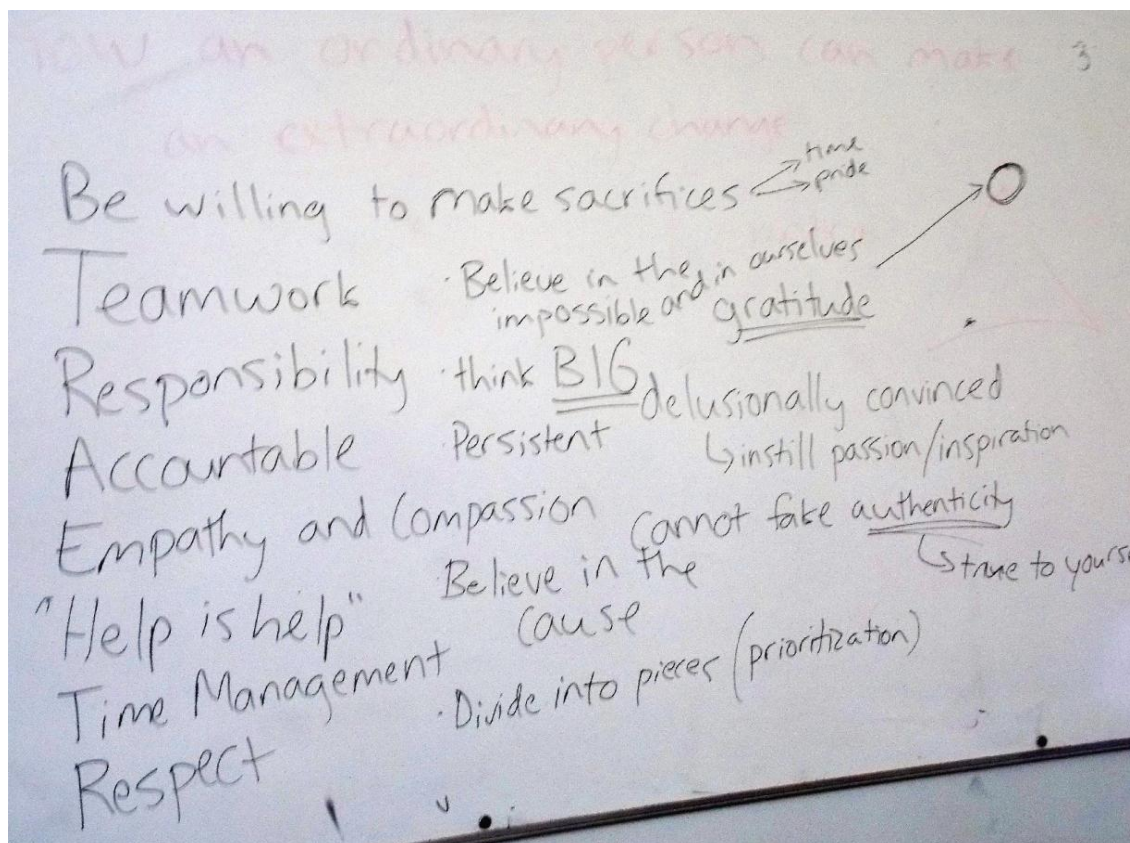 how an ordinary person can make 3
an extraordinary change
Be willing to make sacrifices
time
pride
Teamwork
· Believe in the
impossible and in ourselves
gratitude
Responsibility
· think BIG
delusionally convinced
Accountable
Persistent
instill passion/inspiration
Empathy and Compassion
Cannot fake authenticity
true to yours
"Help is help"
Believe in the
cause
Time Management
· Divide into pieces (prioritization)
Respect